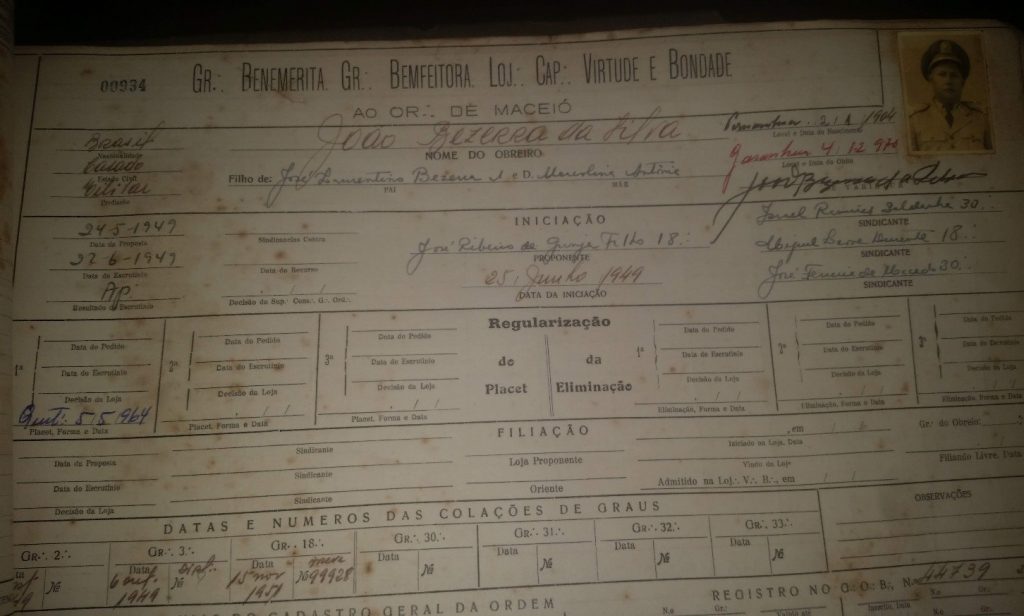 00934
GR∴ BENEMERITA GR∴ BEMFEITORA LOJ∴ CAP∴ VIRTUDE E BONDADE
AO OR∴ DE MACEIÓ
Brasil
Nacionalidade
Casado
Estado Civil
Militar
Profissão
João Bezerra da Silva
NOME DO OBREIRO
Filho de: José Laurentino Bezerra e D. Marcolina Antônia
PAI MÃE
Pernambuco
Local e Data do Nascimento
Garanhuns 4.12.970
Local e Data do Óbito
João Bezerra da Silva
INICIAÇÃO
24-5-1949
Data da Proposta
27-6-1949
Data do Escrutinio
Ap
Resultado do Escrutinio
Sindicancias Contra
Data do Recurso
Decisão do Sup. Cons. G. Ord.
José Ribeiro de Filho 18∴
PROPONENTE
25 Junho 1949
DATA DA INICIAÇÃO
30∴
SINDICANTE
Miguel 18∴
SINDICANTE
José de Macedo 30∴
SINDICANTE
Regularização
do Placet
da Eliminação
1ª
Data do Pedido
Data do Escrutinio
Decisão da Loja
Quit: 5.5.1964
Placet, Forma e Data
2ª
Data do Pedido
Data do Escrutinio
Decisão da Loja
Placet, Forma e Data
3ª
Data do Pedido
Data do Escrutinio
Decisão da Loja
Placet, Forma e Data
1ª
Data do Pedido
Data do Escrutinio
Decisão da Loja
Eliminação, Forma e Data
2ª
Data do Pedido
Data do Escrutinio
Decisão da Loja
Eliminação, Forma e Data
3ª
Data do Pedido
Data do Escrutinio
Decisão da Loja
Eliminação, Forma e Data
FILIAÇÃO
Data da Proposta
Data do Escrutinio
Decisão da Loja
Sindicante
Sindicante
Sindicante
Loja Proponente
Oriente
, em
Iniciado na Loja, Data
Vindo da Loja
Admitido na Loj∴ V∴ B∴, em
Gr∴ do Obreiro:
Filiando Livre, Data
DATAS E NUMEROS DAS COLAÇÕES DE GRAUS
GR∴ 2∴ GR∴ 3∴ GR∴ 18∴ GR∴ 30∴ GR∴ 31∴ GR∴ 32∴ GR∴ 33∴
Nº
Data 1949 Nº
Data 15 nov 1951 Nº 99928
Data Nº
Data Nº
Data Nº
Data Nº
OBSERVAÇÕES
REGISTRO NO G∴ O∴ B∴, No 44739
CADASTRO GERAL DA ORDEM